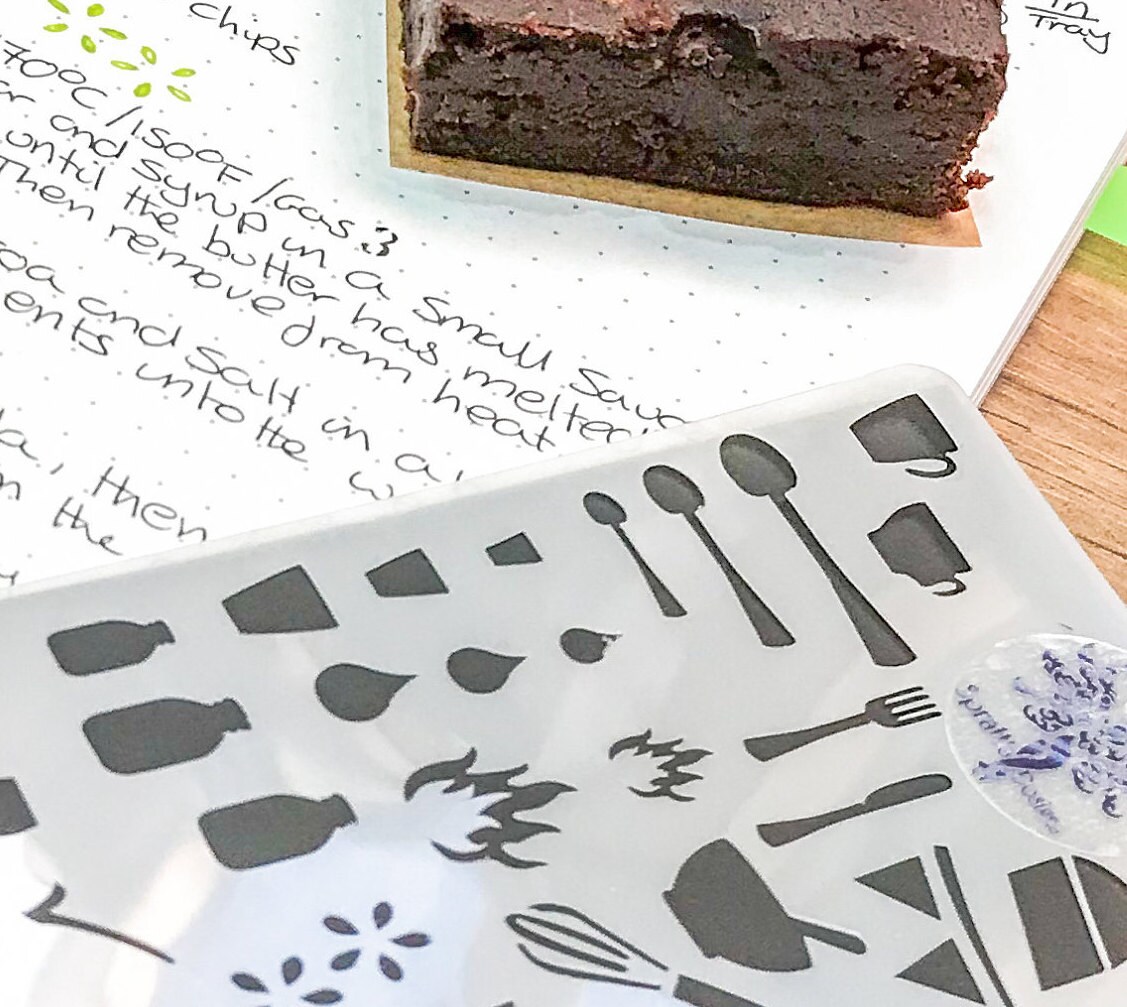 chips
in
Tray
700C/1500F/Gas 3
and Syrup in a small Sauc
until the butter has melted
Then remove from heat
oa and Salt in a
ents into the
, then
the
Spratt's